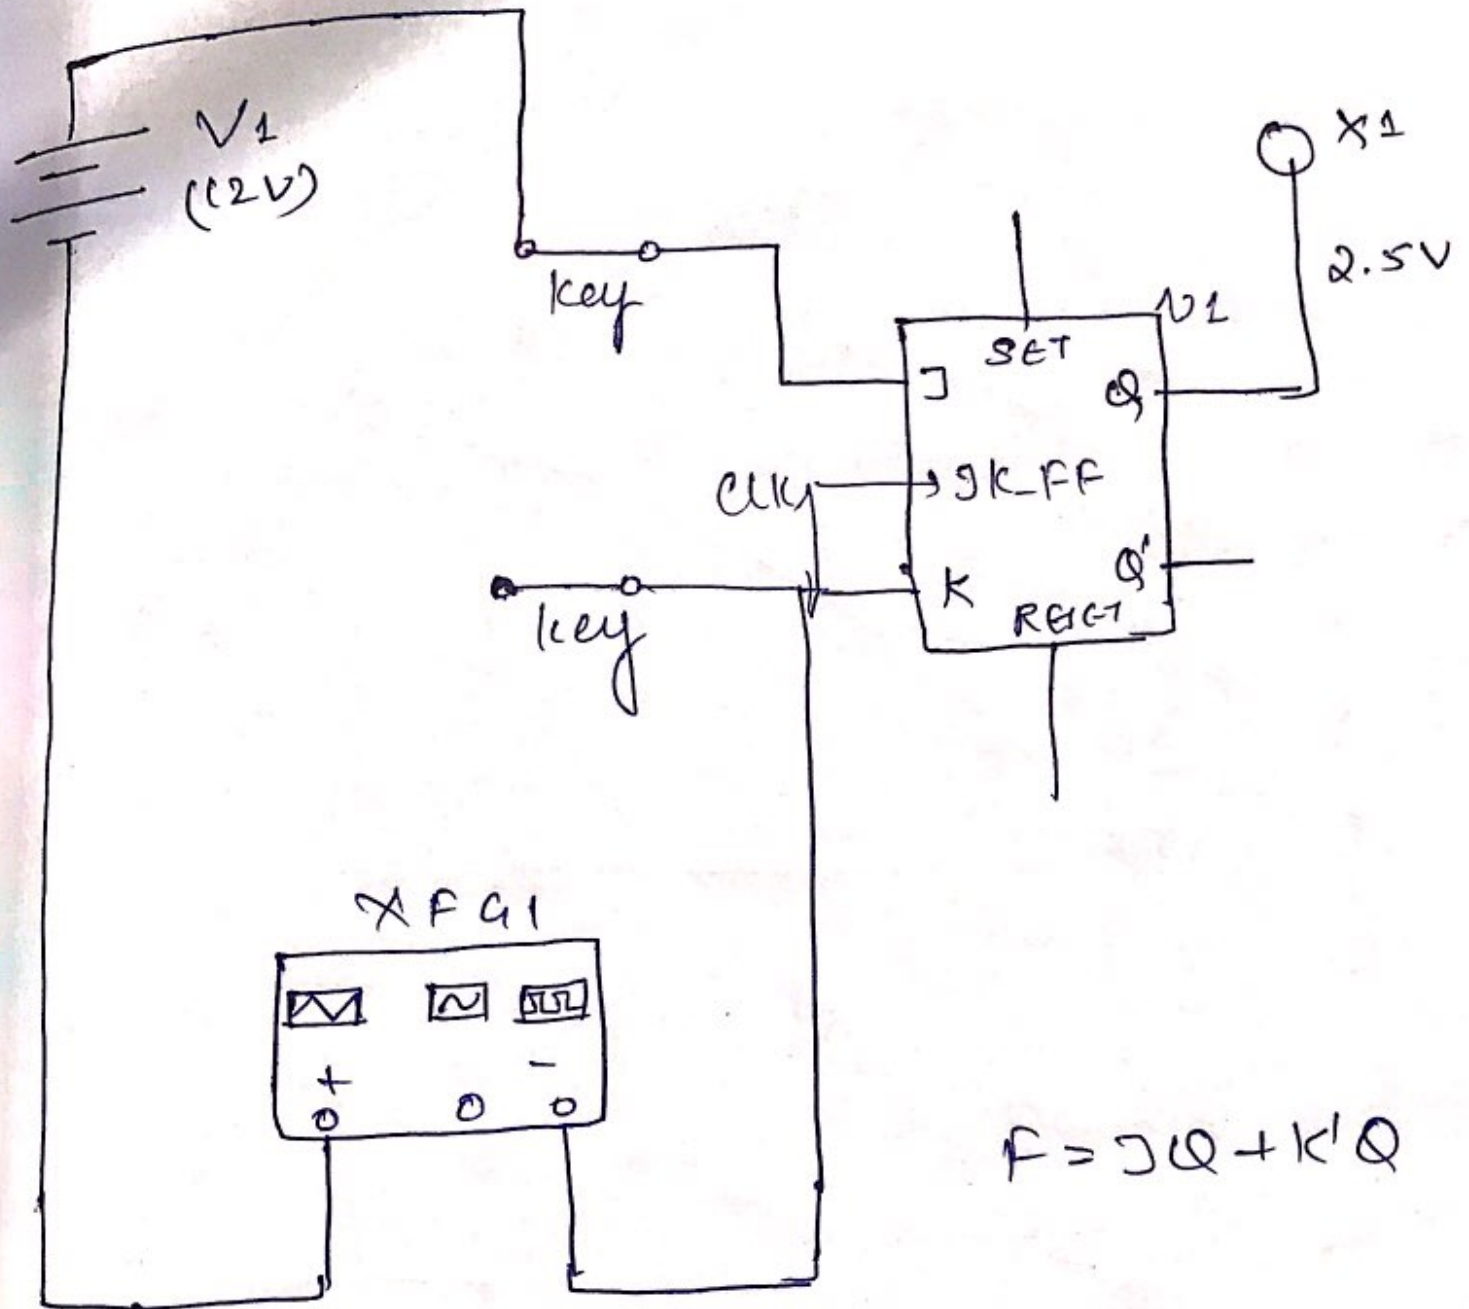 V1
(12V)
X1
2.5V
key
U1
SET
J
Q
CLK
JK_FF
Q'
K
key
RESET
XFG1
+
-
F = JQ + K'Q